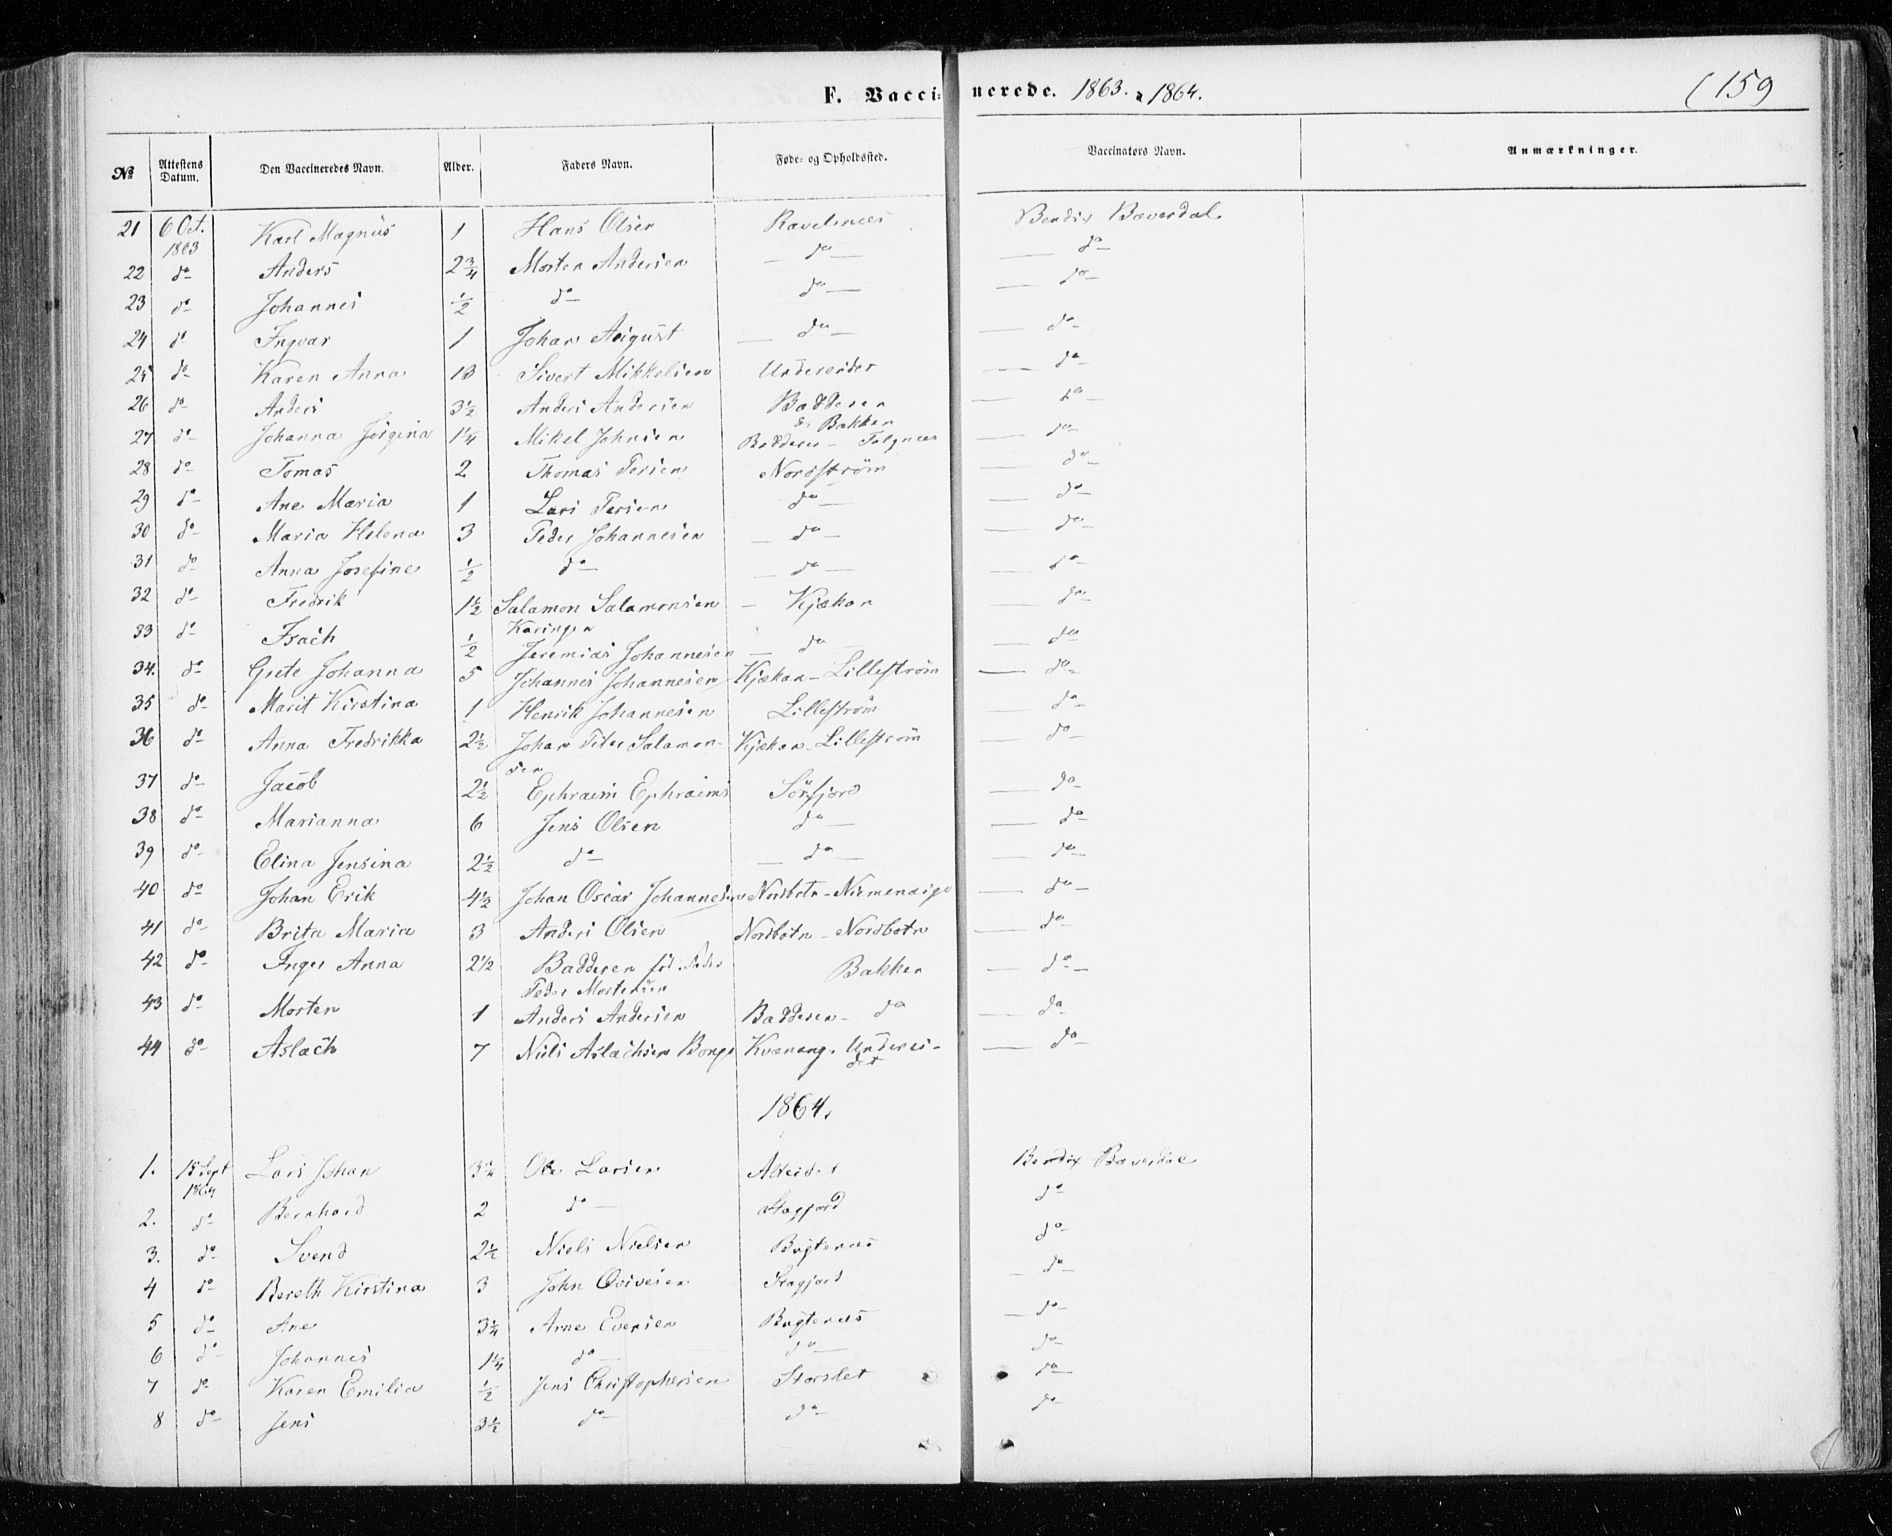 F. Vaccinerede. 1863. & 1864. (159
№ Attestens Datum. Den Vaccineredes Navn. Alder. Faders Navn. Føde- og Opholdssted. Vaccinators Navn. Anmærkninger.
21 6 Oct. 1863 Karl Magnus 1 Hans Olsen Ravelsnæs Bendix Bæverdal.
22 do Anders 2 3/4 Morten Andersen do do
23 do Johannes 1/2 do do do
24 do Ingvar 1 Johan August do do
25 do Karen Anna 13 Sivert Mikkelsen Undereidet do
26 do Anders 3 1/2 Anders Andersen Badderen do
do Bakken
27 do Johanna Jørgina 1 1/4 Mikel Johnsen Badderen - do
28 do Tomas 2 Thomas Persen Nordstrøm do
29 do Ane Maria 1 Lars Persen do do
30 do Maria Helena 3 Peder Johannesen do do
31 do Anna Josefine 1/2 do do do
32 do Fredrik 1 1/2 Salamon Salamonsen Kjækan do
33 do Isach 1/2 Jeremias Johannesen do do
34. do Grete Johanna 5 Johannes Johannesen Kjækan - Lillestrøm do
35 do Marit Kirstina 1 Henrik Johannesen Lillestrøm do
36 do Anna Fredrikka 2 1/2 Johan Peter Salamon- Kjækan - Lillestrøm do
sen
37 do Jacob 2 1/2 Ephraim Ephraims Sörfjord do
38 do Marianna 6 Jens Olsen do do
39 do Elina Jensina 2 1/2 do do do
40 do Johan Erik 4 1/2 Johan Oscar Johannesen Nordbotn - do
41 do Brita Maria 3 Anders Olsen Nordbotn - Nordbotn do
42 do Inger Anna 2 1/2 Badderen Bakken do
Peder Mortensen
43 do Morten 1 Anders Andersen Badderen - do do
44 do Aslach 7 Niels Aslachsen Kvænang. Underei- do
det
1864.
1. 15 Sept 1864 Lars Johan 3 3/4 Ole Larsen Alteidet Bendix Bæverdal
2. do Bernhard 2 do do
3. do Svend 2 1/2 Niels Nielsen Bugtenæs do
4 do Bereth Kirstina 3 John do
5 do Ane 3 1/4 Arne Evensen Bugtenæs do
6 do Johannes 1 1/4 do do do
7 do Karen Emilia 1/2 Jens Christophersen Storslet do
8 do Jens 3 1/2 do do do